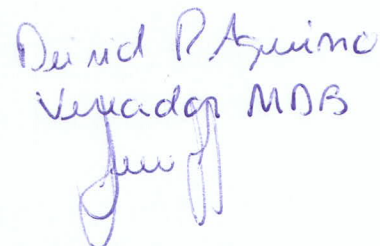 Deivid P. Aquino
Vereador MDB